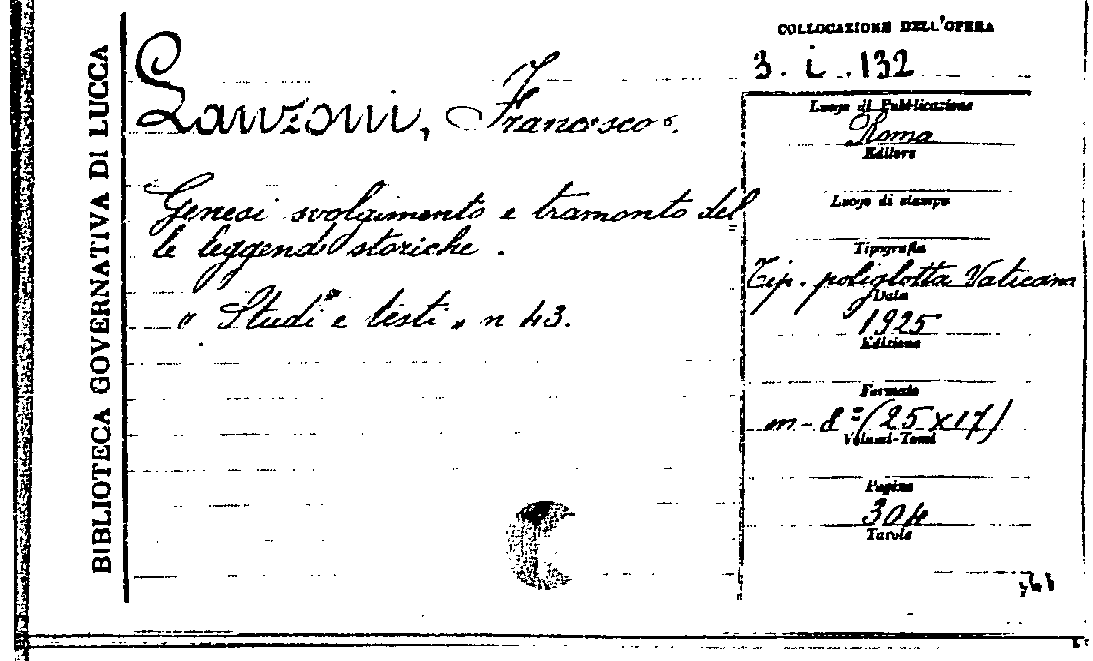 BIBLIOTECA GOVERNATIVA DI LUCCA
Lanzoni, Francesco.
Genesi svolgimento e tramonto del=
le leggende storiche.
" Studi e testi " n 43.
COLLOCAZIONE DELL'OPERA
3. i. 132
Luogo di Pubblicazione
Roma
Editore
Luogo di stampa
Tipografia
Tip. poliglotta Vaticana
Data
1925
Edizione
Formato
m-8° (25x17)
Volumi-Tomi
Pagine
304
Tavole